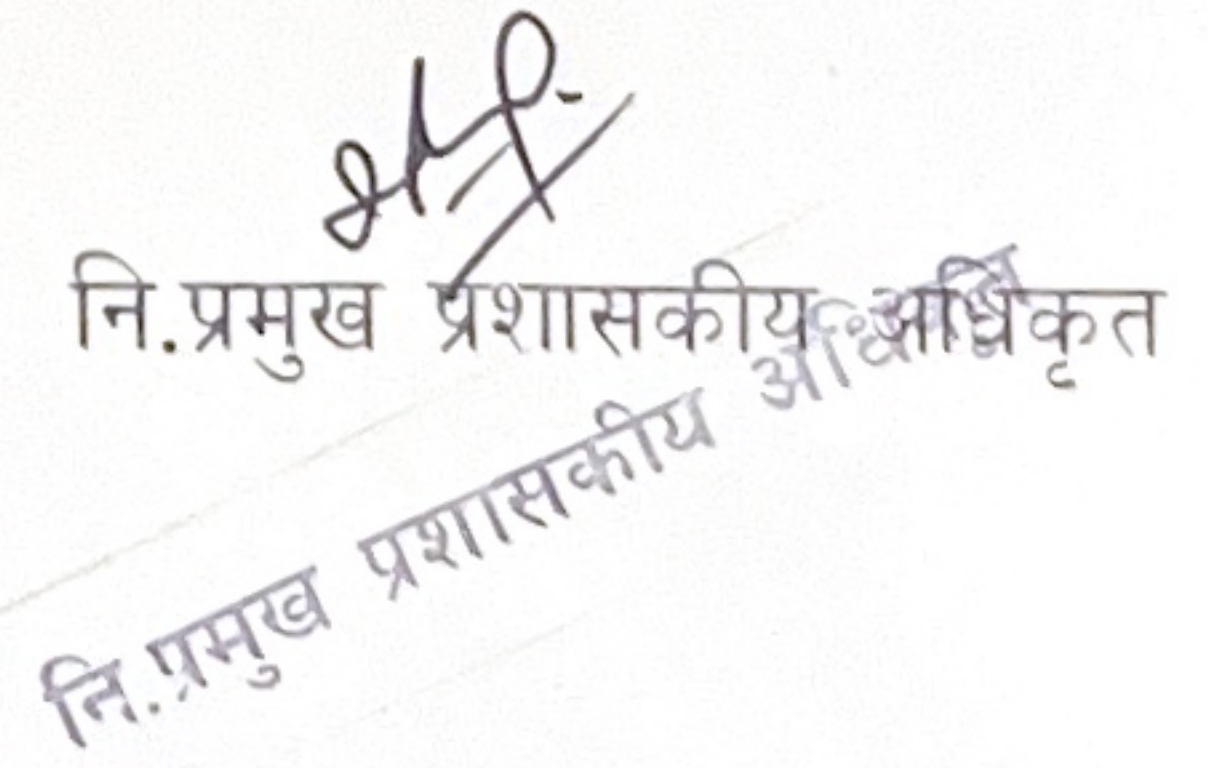 नि.प्रमुख प्रशासकीय अधिकृत
नि.प्रमुख प्रशासकीय